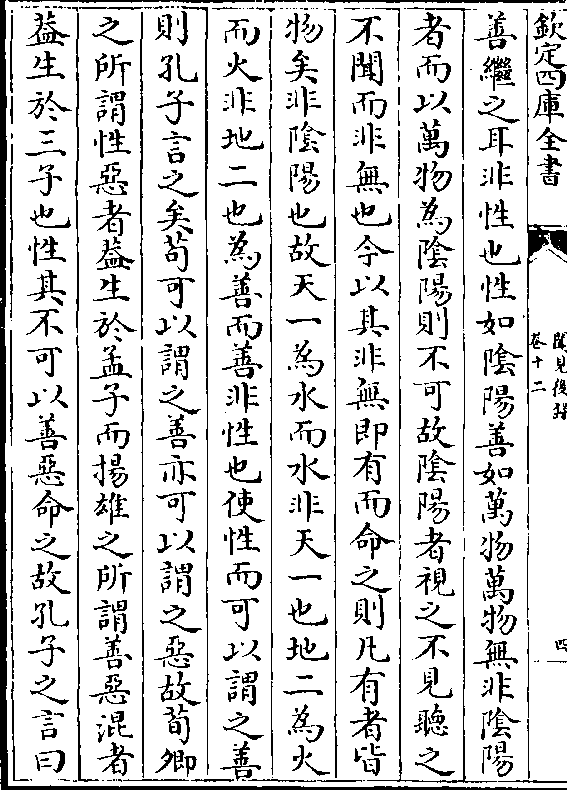 欽定四庫全書
聞見後録
卷十二
四
善繼之耳非性也性如陰陽善如萬物萬物無非陰陽
者而以萬物為陰陽則不可故陰陽者視之不見聽之
不聞而非無也今以其非無即有而命之則凡有者皆
物矣非陰陽也故天一為水而水非天一也地二為火
而火非地二也為善而善非性也使性而可以謂之善
則孔子言之矣苟可以謂之善亦可以謂之惡故荀卿
之所謂性惡者葢生於孟子而揚雄之所謂善惡混者
葢生於三子也性其不可以善惡命之故孔子之言曰